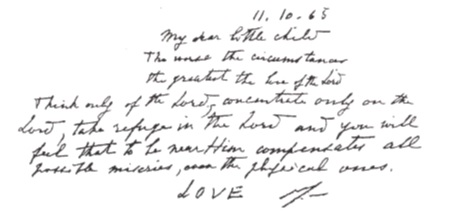 11.10.65
My dear little child
The worse the circumstances
the greatest the love of the Lord
Think only of the Lord, concentrate only on the
Lord, take refuge in the Lord and you will
feel that to be near Him compensates all
possible miseries, even the physical ones.
LOVE